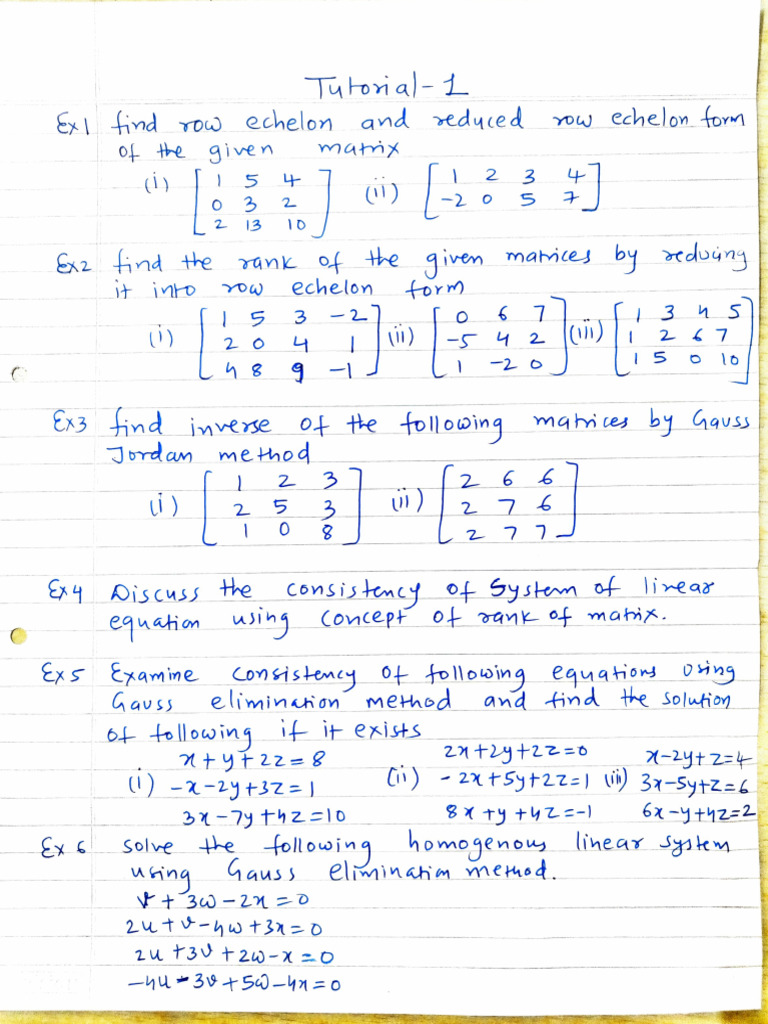 Tutorial-1
Ex1 find row echelon and reduced row echelon form
of the given matrix
(i) [ 1 5 4 (ii) [ 1 2 3 4
0 3 2 -2 0 5 7 ]
2 13 10 ]
Ex2 find the rank of the given matrices by reducing
it into row echelon form
(i) [ 1 5 3 -2 (ii) [ 0 6 7 (iii) [ 1 3 4 5
2 0 4 1 -5 4 2 1 2 6 7
4 8 9 -1 ] 1 -2 0 ] 1 5 0 10 ]
Ex3 find inverse of the following matrices by Gauss
Jordan method
(i) [ 1 2 3 (ii) [ 2 6 6
2 5 3 2 7 6
1 0 8 ] 2 7 7 ]
Ex4 Discuss the consistency of System of linear
equation using concept of rank of matrix.
Ex5 Examine consistency of following equations using
Gauss elimination method and find the solution
of following if it exists
x+y+2z=8 2x+2y+2z=0 x-2y+z=4
(i) -x-2y+3z=1 (ii) -2x+5y+2z=1 (iii) 3x-5y+z=6
3x-7y+4z=10 8x+y+4z=-1 6x-y+4z=2
Ex 6 solve the following homogenous linear system
using Gauss elimination method.
v+3w-2x=0
2u+v-4w+3x=0
2u+3v+2w-x=0
-4u-3v+5w-4x=0